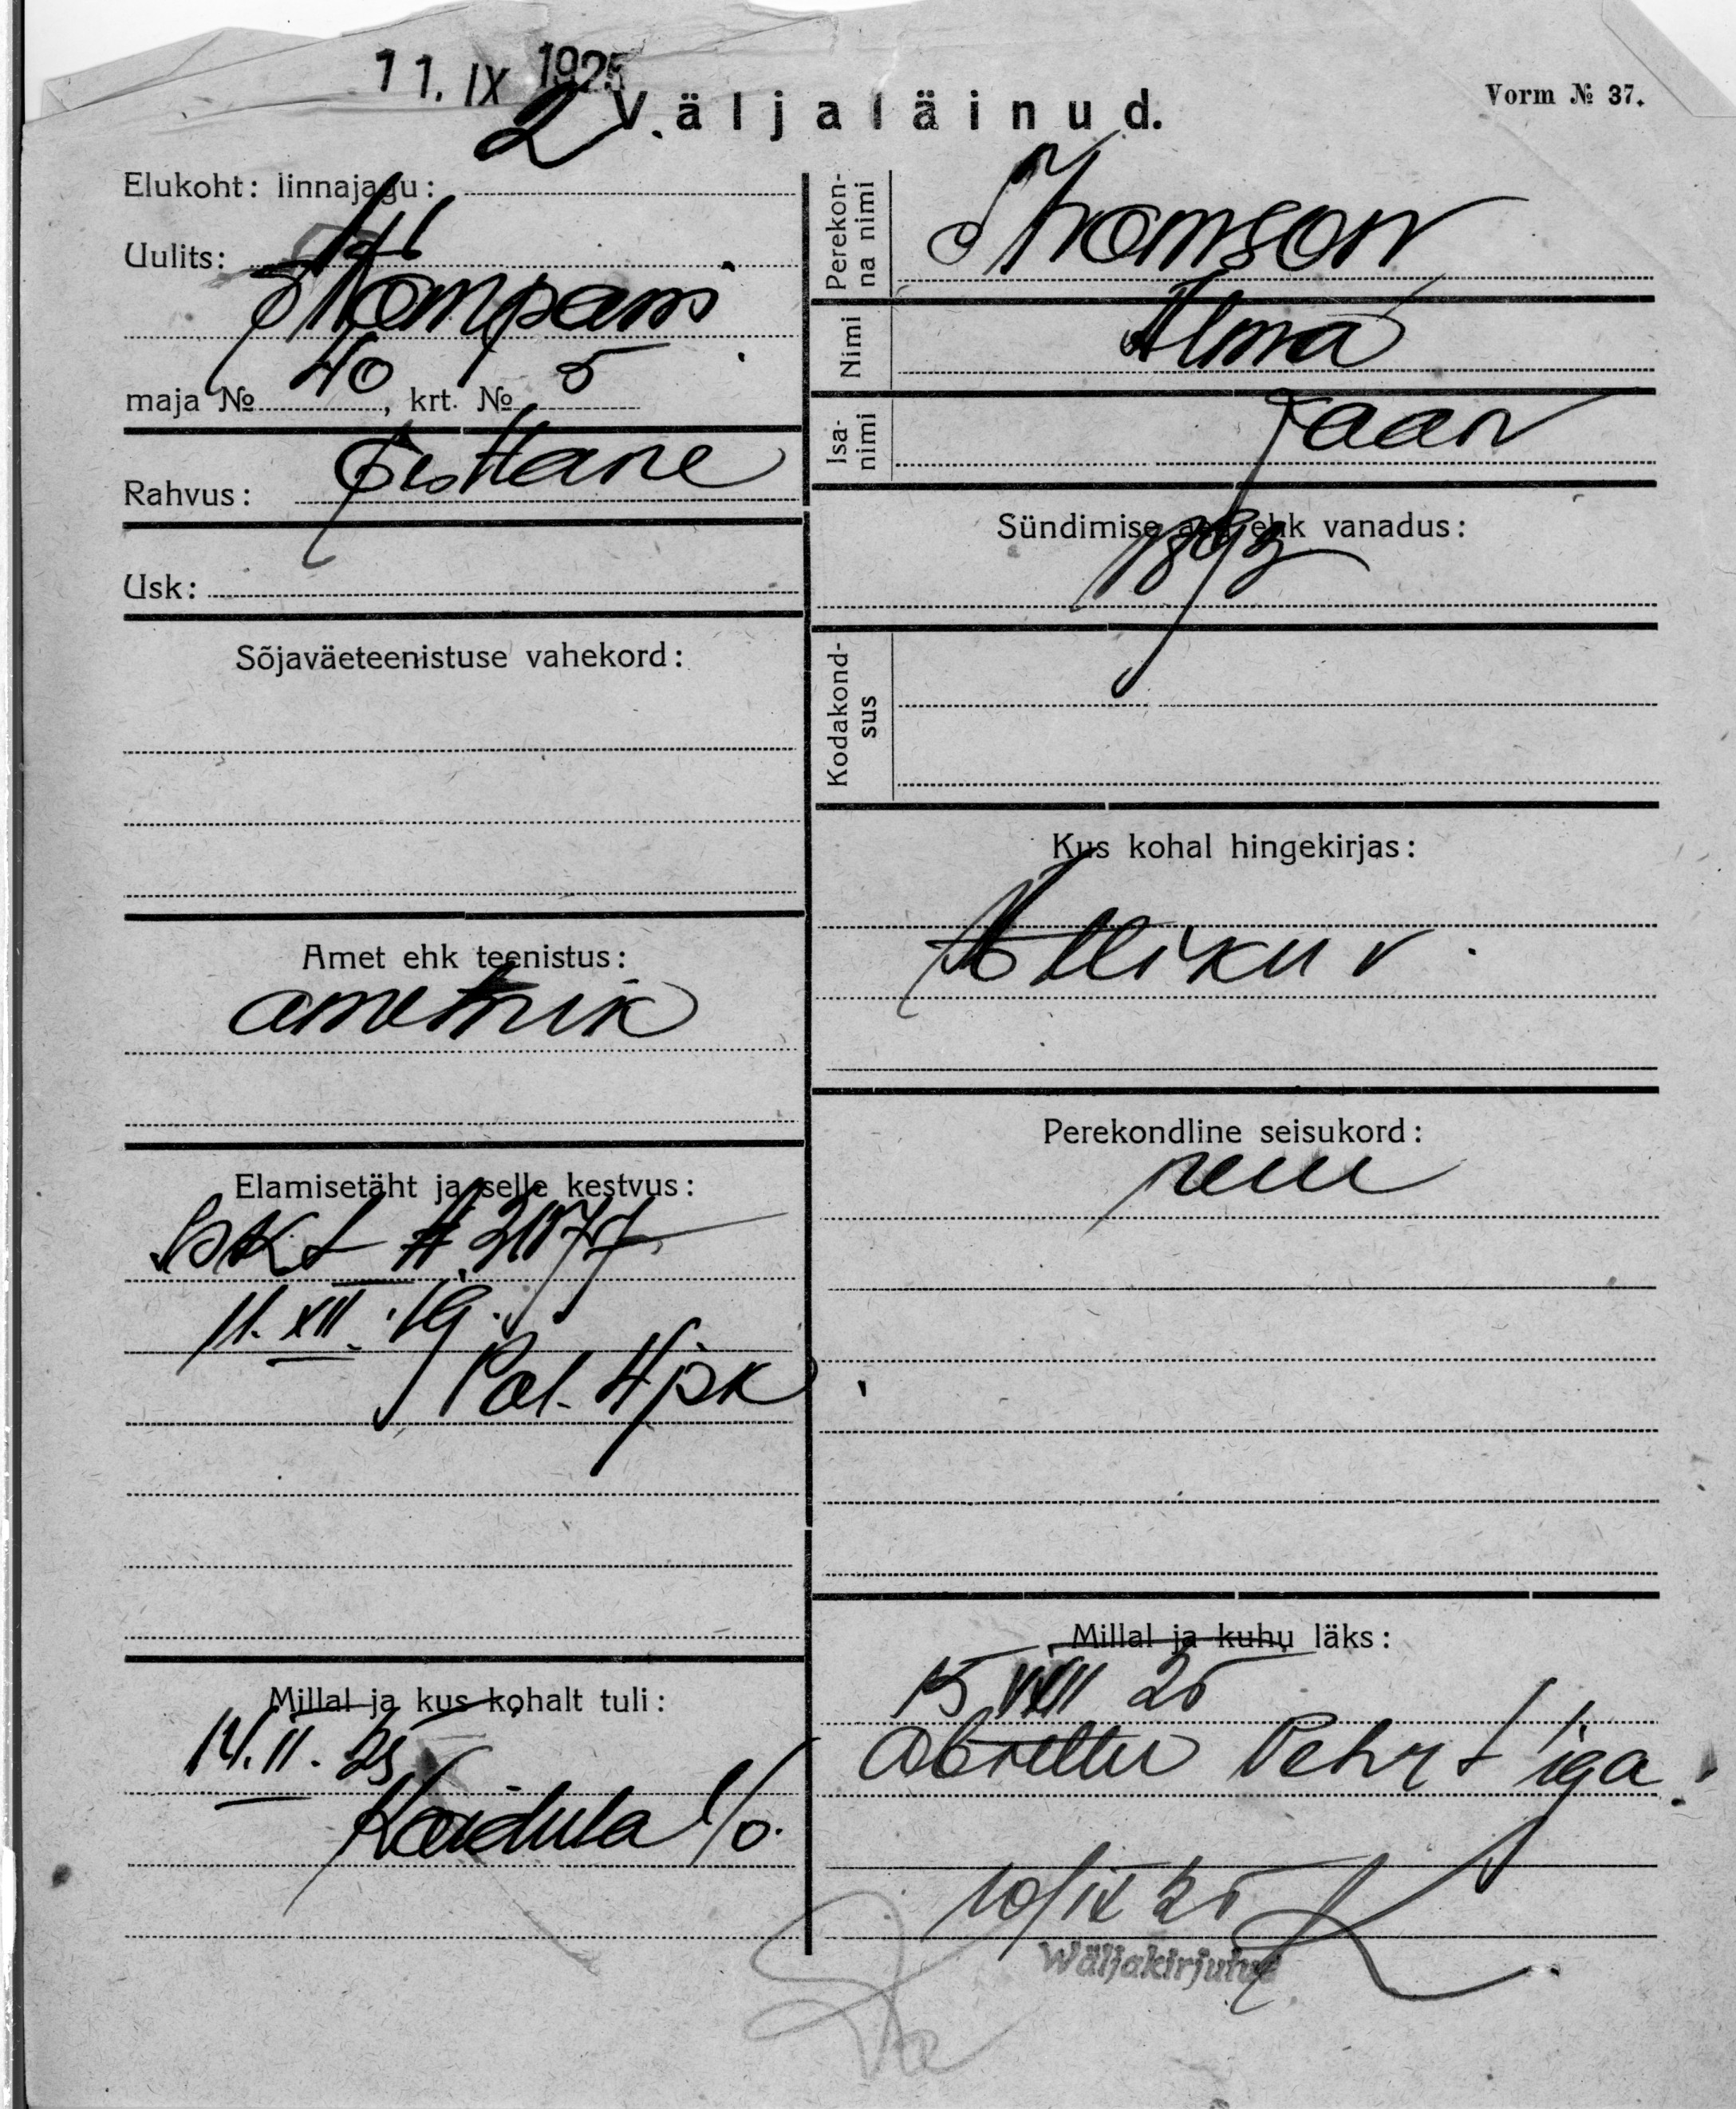 11. IX 1925
2
Väljaläinud.
Vorm № 37.
Elukoht: linnajagu:
Uulits:
Kompanii
maja № 40, krt. № 5
Rahvus: Eestlane
Usk:
Sõjaväeteenistuse vahekord:
Amet ehk teenistus:
ametnik
Elamisetäht ja selle kestvus:
11. XII. 19.
Pol. 4 jsk
Millal ja kus kohalt tuli:
14. II. 25
Koidula 1/0.
Perekonna nimi Thomson
Nimi Alma
Isanimi Jaan
Sündimise aeg ehk vanadus:
1893
Kodakondsus
Kus kohal hingekirjas:
v.
Perekondline seisukord:
neiu
Millal ja kuhu läks:
15 VIII 25
Abiellu
10/IX 25
Wäljakirjutud